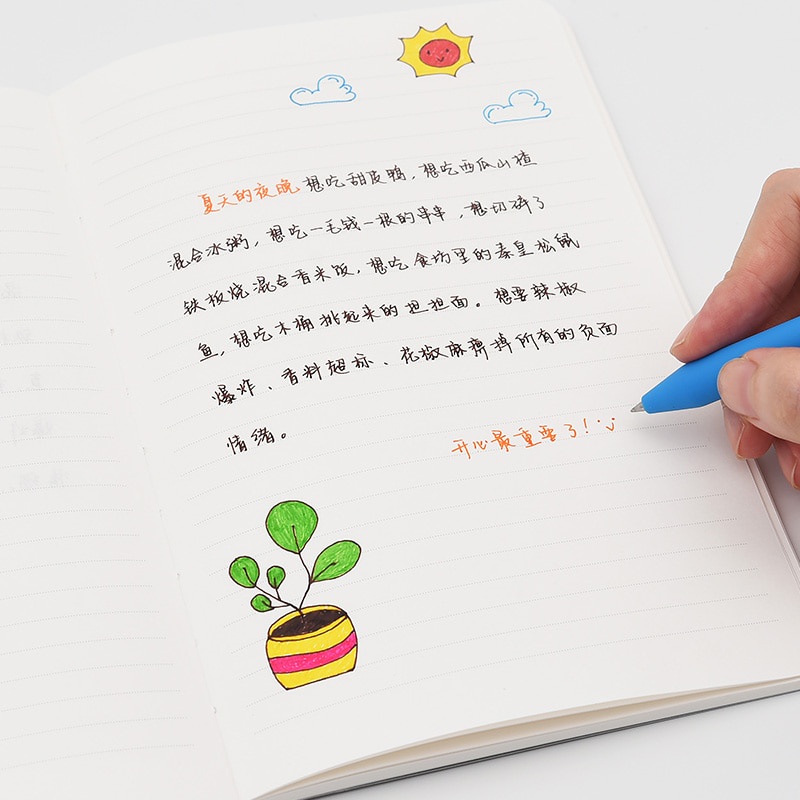 夏天的夜晚想吃甜皮鸭，想吃西瓜山楂
混合冰粥，想吃一毛钱一根的串串，想切碎了
铁板烧混合香米饭，想吃食坊里的秦皇松鼠
鱼，想吃木桶挑起来的担担面。想要辣椒
爆炸、香料超标、花椒麻痹掉所有的负面
情绪。
开心最重要了！